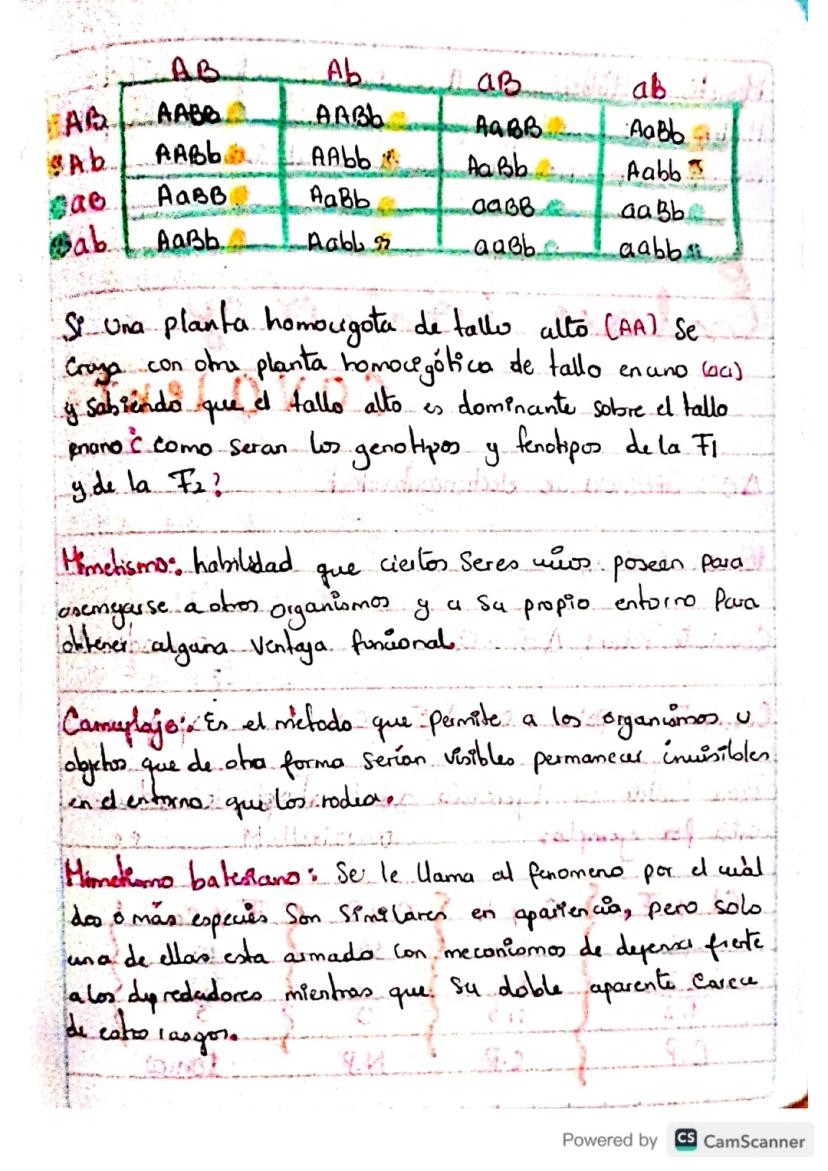 AB Ab aB ab
AB AABB AABb AaBB AaBb
Ab AABb AAbb AaBb Aabb
aB AaBB AaBb aaBB aaBb
ab AaBb Aabb aaBb aabb
Si una planta homocigota de tallo alto (AA) se
cruza con otra planta homocigótica de tallo enano (aa)
y sabiendo que el tallo alto es dominante sobre el tallo
enano ¿ como seran los genotipos y fenotipos de la F1
y de la F2?
Mimetismo: habilidad que ciertos seres vivos poseen para
asemejarse a otros organismos y a su propio entorno para
obtener alguna ventaja funcional.
Camuflaje: Es el método que permite a los organismos u
objetos que de otra forma serían visibles permanecer invisibles
en el entorno que los rodea.
Mimetismo batesiano: Se le llama al fenomeno por el cuál
dos o más especies son similares en apariencia, pero solo
una de ellas esta armada con mecanismos de defensa frente
a los depredadores mientras que su doble aparente carece
de estos rasgos.
Powered by CS CamScanner